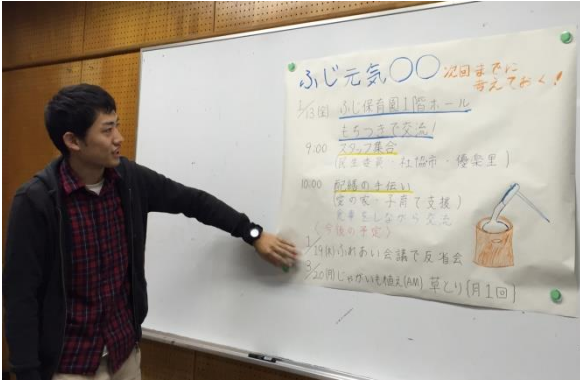 ふじ元気〇〇
次回までに
考えておく!
1/13(金) ふじ保育園1階ホール
もちつきで交流!
9:00 スタッフ集合
(民生委員・社協市・優楽里)
10:00 配膳の手伝い
(愛の家・子育て支援)
食事をしながら交流
〈今後の予定〉
ふれあい会議で反省会
3/20(月)じゃがいも植え(AM) 草とり{月1回}